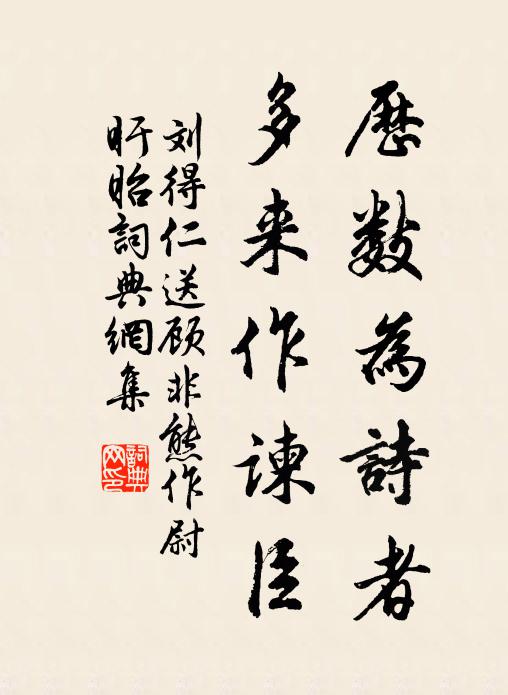 歷數為詩者
多来作諫臣
刘得仁送顾非熊作尉
盱眙詞典網集
詞典
网印